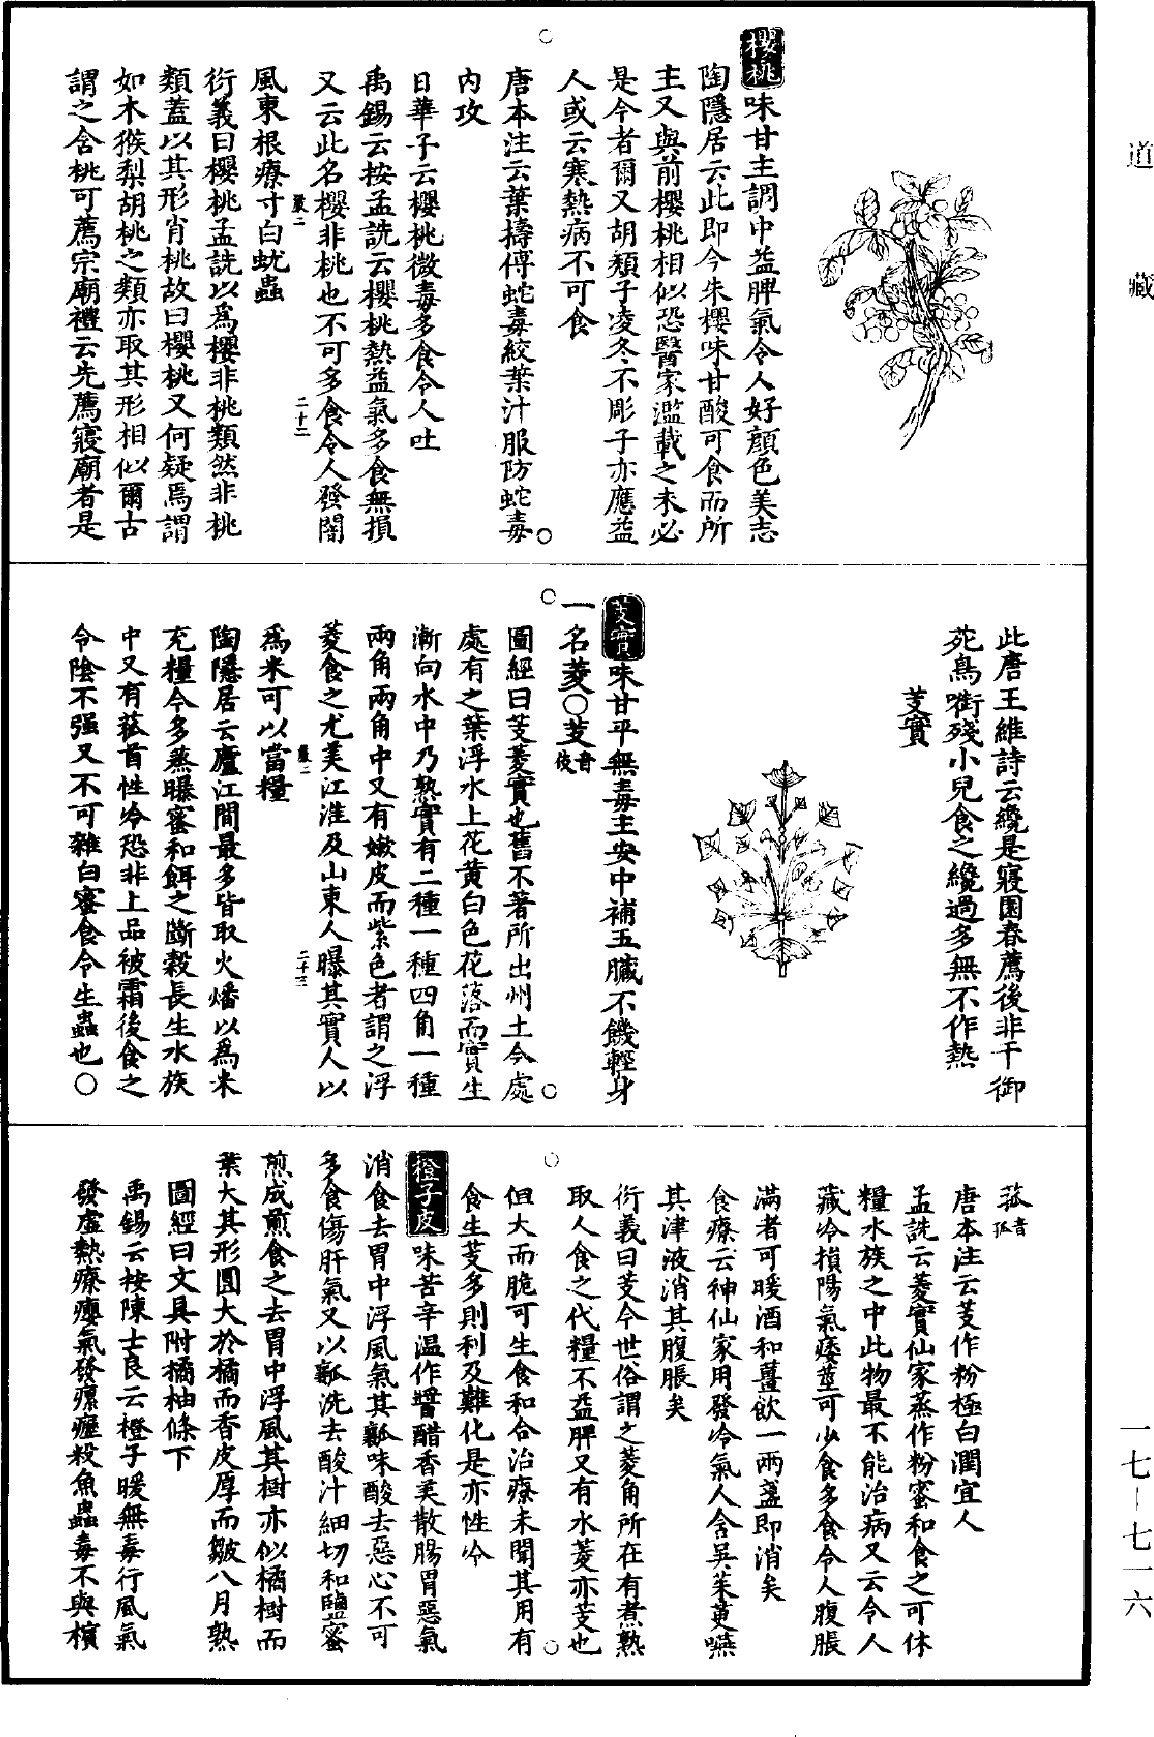 道藏
櫻桃味甘主調中益脾氣令人好顏色美志
陶隱居云此即今朱櫻味甘酸可食而所
主又與前櫻桃相似恐醫家濫載之未必
是今者爾又胡頹子凌冬不彫子亦應益
人或云寒熱病不可食
唐本注云葉擣傅蛇毒絞葉汁服防蛇毒
內攻
日華子云櫻桃微毒多食令人吐
禹錫云按孟詵云櫻桃熱益氣多食無損
又云此名櫻非桃也不可多食令人發闇
嚴二 二十二
風東根療寸白蚘蟲
衍義曰櫻桃孟詵以爲櫻非桃類然非桃
類蓋以其形肖桃故曰櫻桃又何疑焉謂
如木猴梨胡桃之類亦取其形相似爾古
謂之含桃可薦宗廟禮云先薦寢廟者是
此唐王維詩云纔是寢園春薦後非干御
苑鳥銜殘小兒食之纔過多無不作熱
芰實
芰實味甘平無毒主安中補五臟不饑輕身
一名菱○芰音伎
圖經曰芰菱實也舊不著所出州土今處
處有之葉浮水上花黃白色花落而實生
漸向水中乃熟實有二種一種四角一種
兩角兩角中又有嫩皮而紫色者謂之浮
菱食之尤美江淮及山東人曝其實人以
嚴二 二十三
爲米可以當糧
陶隱居云廬江間最多皆取火燔以爲米
充糧今多蒸曝蜜和餌之斷穀長生水族
中又有菰首性冷恐非上品被霜後食之
令陰不强又不可雜白蜜食令生蟲也○
菰音孤
唐本注云芰作粉極白潤宜人
孟詵云菱實仙家蒸作粉蜜和食之可休
糧水族之中此物最不能治病又云令人
藏冷損陽氣痿莖可少食多食令人腹脹
滿者可暖酒和薑飲一兩盞即消矣
食療云神仙家用發冷氣人含吳茱萸嚥
其津液消其腹脹矣
衍義曰芰今世俗謂之菱角所在有煮熟
取人食之代糧不益脾又有水菱亦芰也
但大而脆可生食和合治療未聞其用有
食生芰多則利及難化是亦性冷
橙子皮味苦辛溫作醬醋香美散腸胃惡氣
消食去胃中浮風氣其瓤味酸去惡心不可
多食傷肝氣又以瓤洗去酸汁細切和鹽蜜
煎成煎食之去胃中浮風其樹亦似橘樹而
葉大其形圓大於橘而香皮厚而皺八月熟
圖經曰文具附橘柚條下
禹錫云按陳士良云橙子暖無毒行風氣
發虛熱療癭氣發瘰癧殺魚蟲毒不與檳
一七—七一六